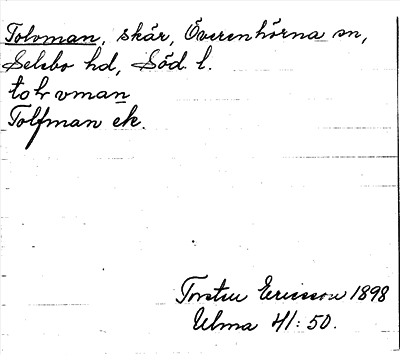 Tolvman, skär, Överenhörna sn,
Selebo hd, Söd. l.
tolvman
Tolfman ek.
Torsten Ericsson 1898
Ulma 41:50.